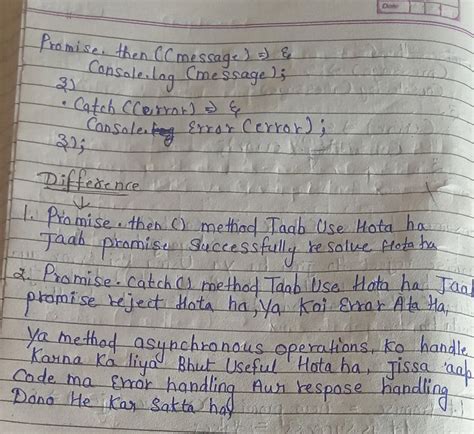 Date
Promise.then((message) => {
Console.log (message);
})
.Catch((error) => {
Console. Error (error);
});
Difference
1. Promise.then() method Jaab Use Hota ha
Jaab promise Successfully resolve Hota ha
2. Promise.catch() method Taab Use Hota ha Jaab
promise reject Hota ha, Ya Koi Error Ata Ha,
Ya method asynchronous operations, Ko handle
Karna Ka liya Bhut Useful Hota ha, Jissa aap
Code ma Error handling Aur respose handling
Dono He Kar Sakta hay